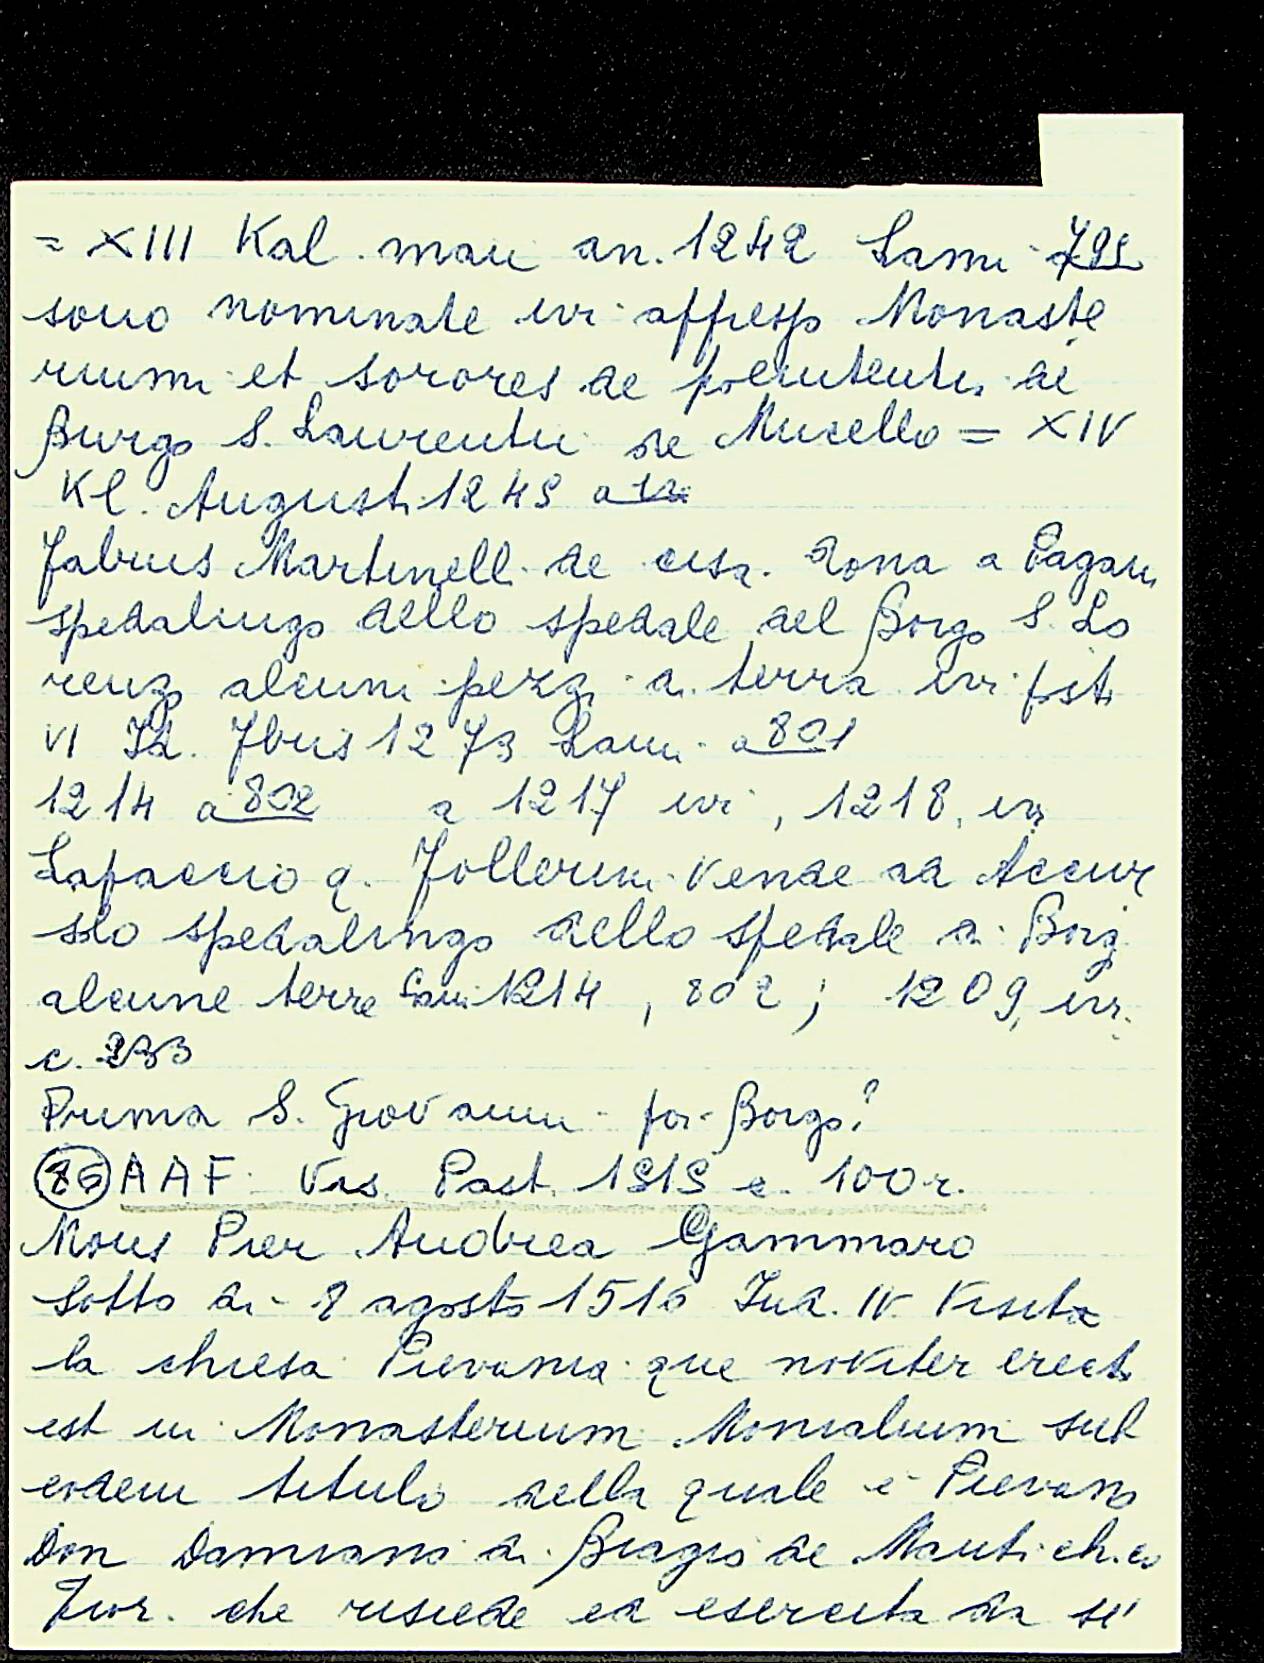 = XIII Kal. mau an. 1242 Lami 795
sono nominate ivi appresso Monaste
rium et sorores de poenitentia de
Burgo S. Laurentii de Mucello = XIV
Kl. Augusti 1245 a
Fabrus Martinelli de cisa. dona a Pagani
spedalingo dello spedale del Borgo S. Lo
renzo alcuni pezzi di terra ivi posti
VI Id. 7bris 1273 Lami a 801
1214 a 802 a 1217 ivi, 1218, ivi
Lapaccio q. Jollerini vende ad Accur
sio spedalingo dello spedale di Borg
alcune terre Lami 1214, 802; 1209, ivi
c. 233
Prima S. Giovanni poi Borgo?
86 AAF. Vis. Past. 1515 c. 100r.
Mons Pier Andrea Gammaro
Sotto di 8 agosto 1516 Ind. IV Visita
la chiesa Pievania que noviter erecta
est in Monasterium Monialium sub
eodem titulo della quale è Pievano
Don Damiano di Biagio de Manti ch.co
Fior. che risiede ed esercita da sé